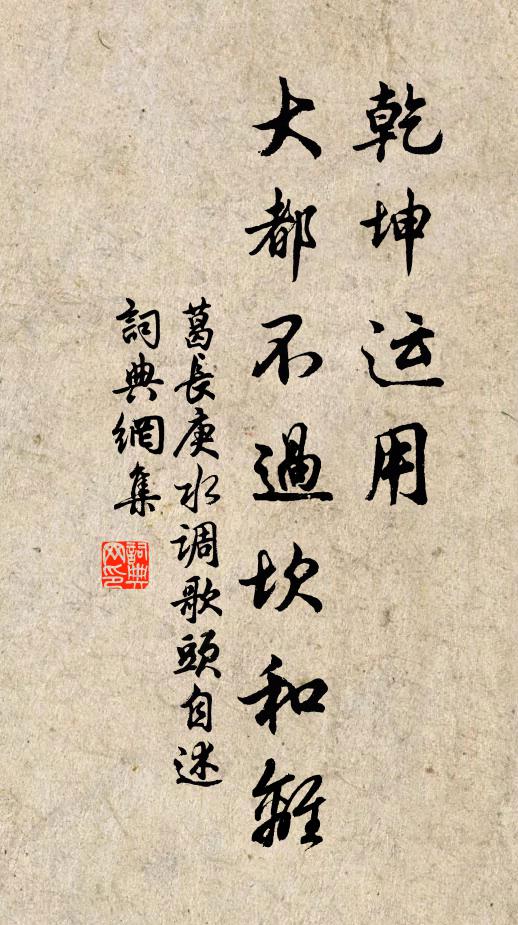 乾坤运用
大都不過坎和離
葛長庚水调歌頭自述
詞典網集
詞典網印